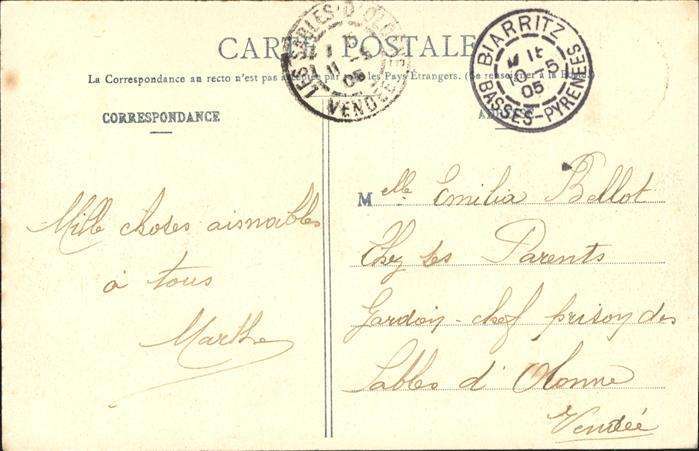 CARTE POSTALE
La Correspondance au recto n'est pas acceptée par tous les Pays Étrangers. (Se renseigner à la Poste)
LES SABLES-D'OLONNE
11 -5
05
VENDÉE
BIARRITZ
10 -5
05
BASSES-PYRENEES
CORRESPONDANCE
Mille choses aismables
à tous
Marthe
Melle Emilia Bellot
Chez ses Parents
Gardoin-chef prison des
Sables d'Olonne
Vendée